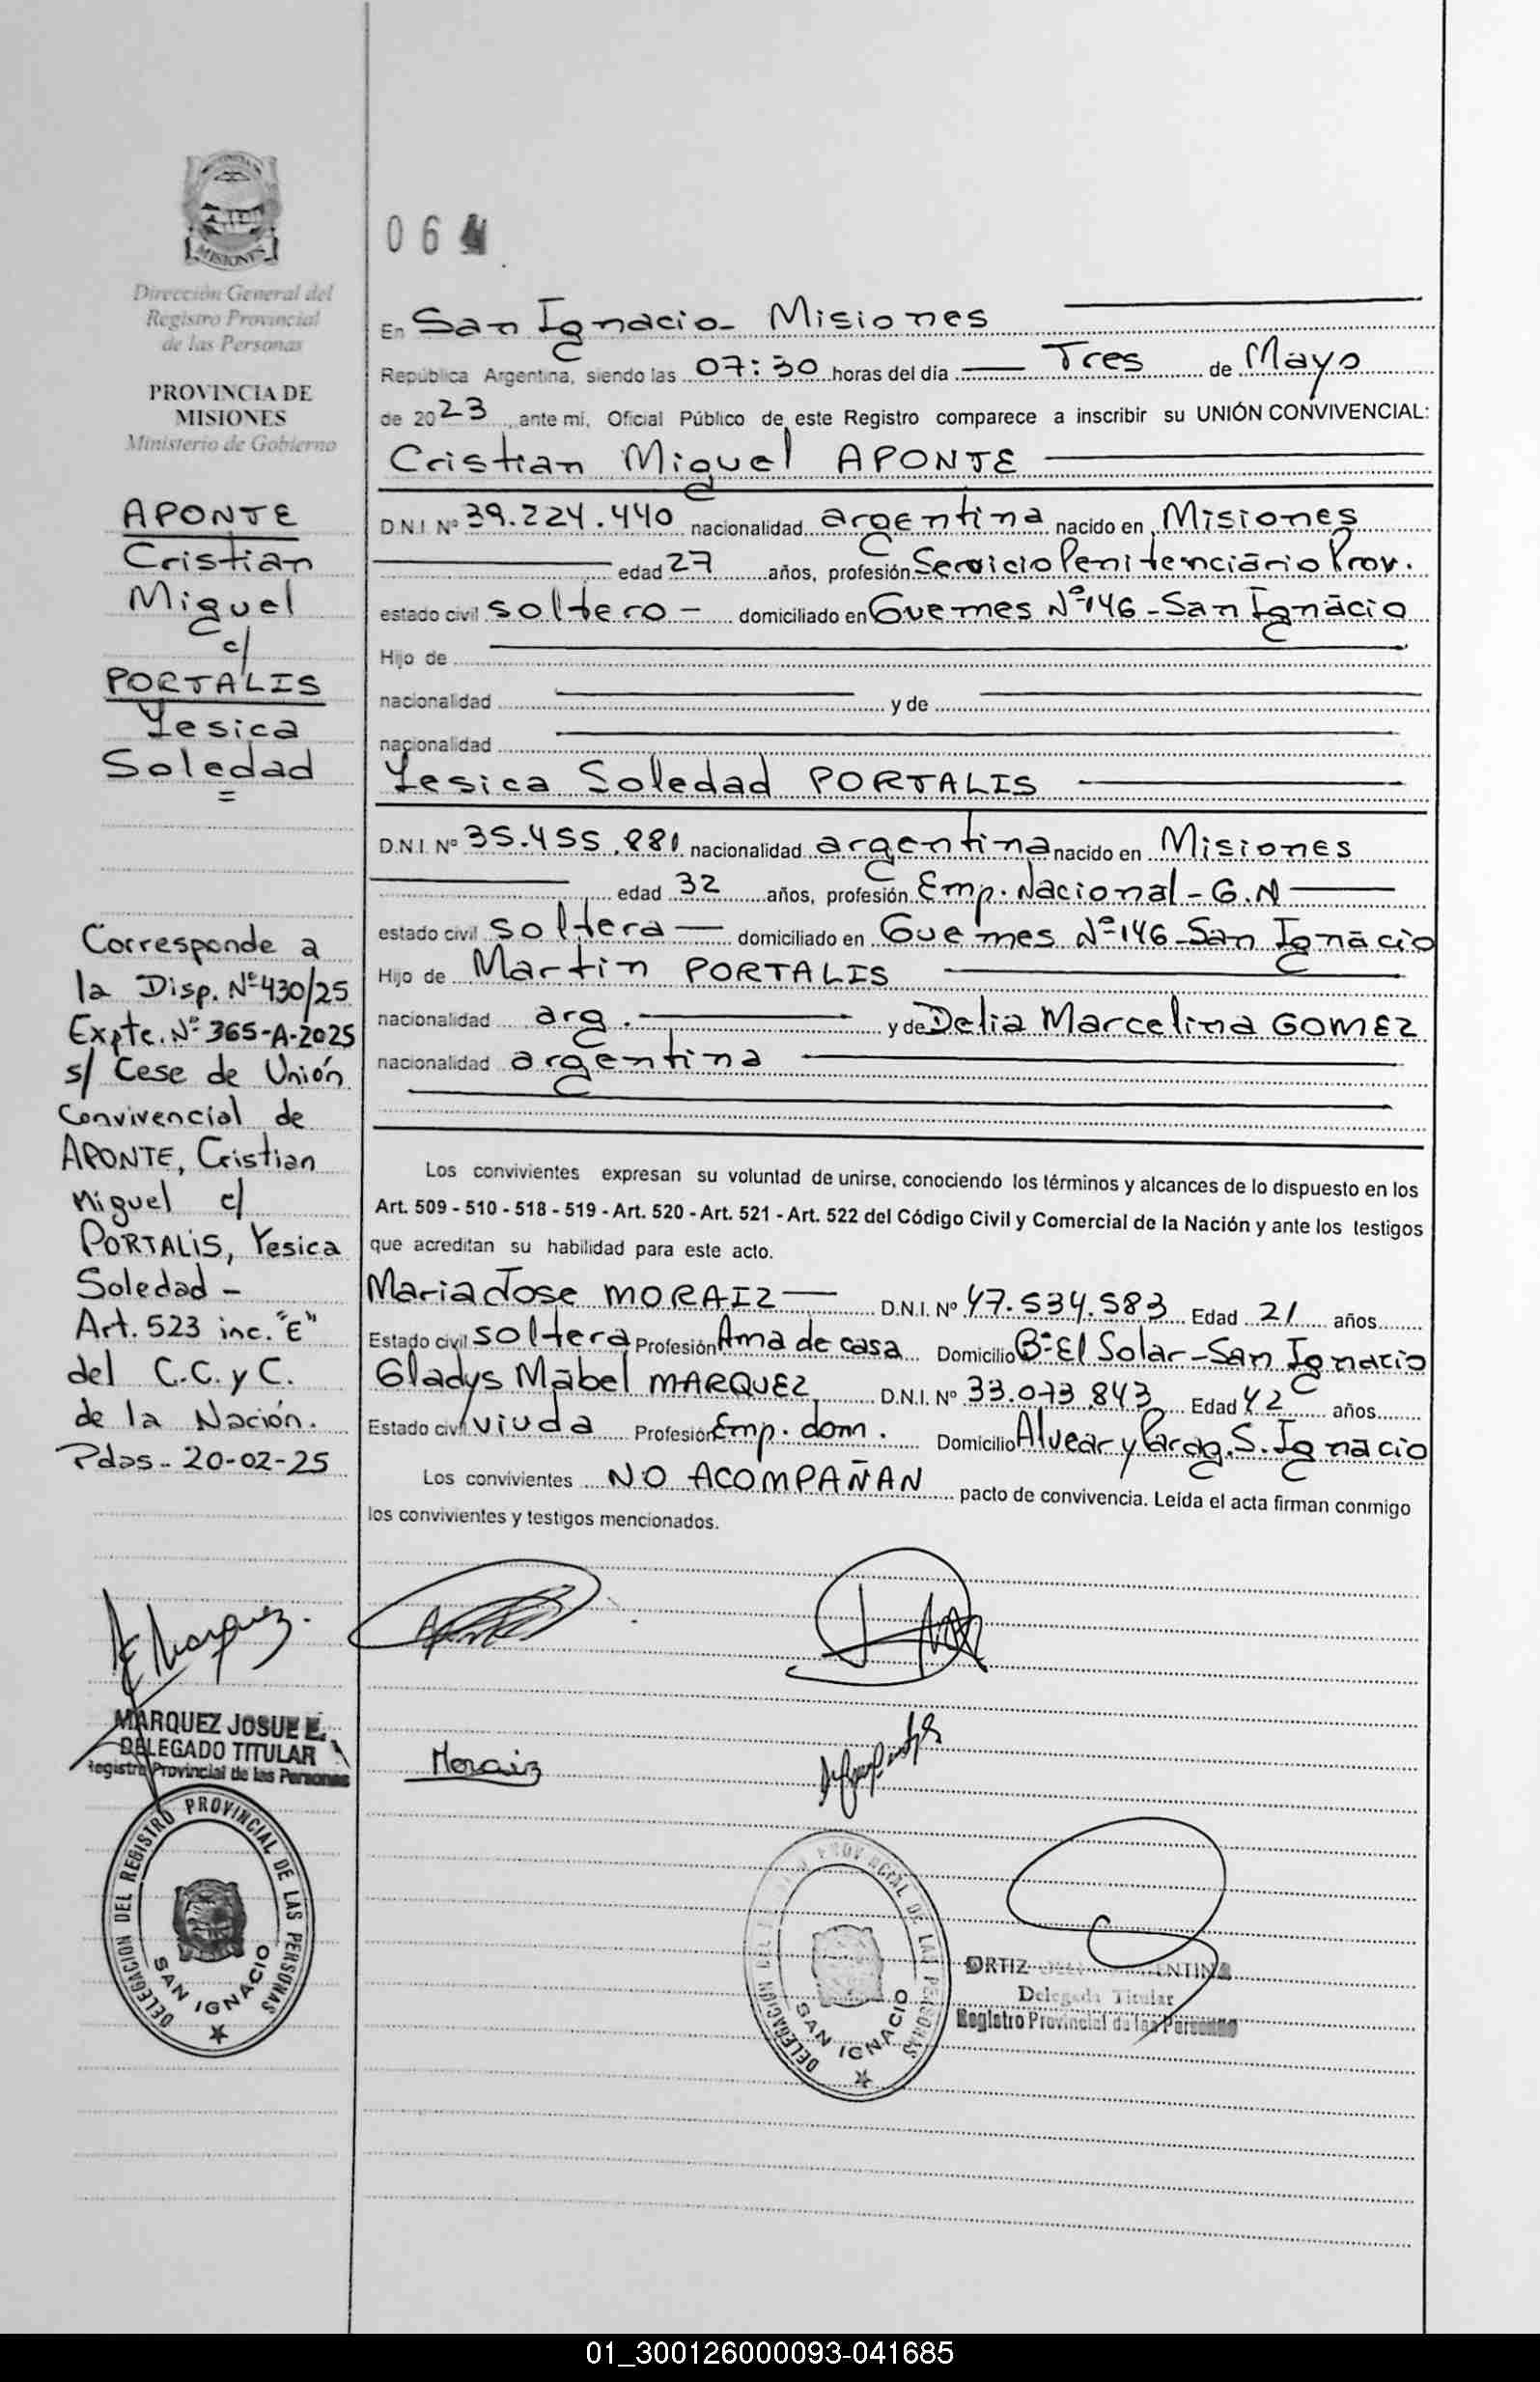 MISIONES
Dirección General del
Registro Provincial
de las Personas
PROVINCIA DE
MISIONES
Ministerio de Gobierno
APONTE
Cristian
Miguel
c/
PORTALIS
Yesica
Soledad
=
Corresponde a
la Disp. Nº 430/25
Expte. Nº 365-A-2025
s/ Cese de Unión
Convivencial de
APONTE, Cristian
Miguel c/
PORTALIS, Yesica
Soledad -
Art. 523 inc. "E"
del C.C. y C.
de la Nación.
Pdas - 20-02-25
MARQUEZ JOSUE E.
DELEGADO TITULAR
Registro Provincial de las Personas
DELEGACION DEL REGISTRO PROVINCIAL DE LAS PERSONAS
SAN IGNACIO
06
En San Ignacio - Misiones
República Argentina, siendo las 07:30 horas del día — Tres de Mayo
de 2023, ante mi, Oficial Público de este Registro comparece a inscribir su UNIÓN CONVIVENCIAL:
Cristian Miguel APONTE
D.N.I. Nº 39.224.440 nacionalidad argentina nacido en Misiones
edad 27 años, profesión Servicio Penitenciário Prov.
estado civil soltero - domiciliado en Guemes Nº 146 - San Ignácio
Hijo de
nacionalidad y de
nacionalidad
Yesica Soledad PORTALIS
D.N.I. Nº 35.455.881 nacionalidad argentina nacido en Misiones
edad 32 años, profesión Emp. Nacional - G.N
estado civil soltera — domiciliado en Guemes Nº 146 - San Ignácio
Hijo de Martin PORTALIS
nacionalidad arg. y de Delia Marcelina GOMEZ
nacionalidad argentina
Los convivientes expresan su voluntad de unirse, conociendo los términos y alcances de lo dispuesto en los
Art. 509 - 510 - 518 - 519 - Art. 520 - Art. 521 - Art. 522 del Código Civil y Comercial de la Nación y ante los testigos
que acreditan su habilidad para este acto.
Maria Jose MORAIZ — D.N.I. Nº 47.534.583 Edad 21 años
Estado civil soltera Profesión Ama de casa Domicilio Bº El Solar - San Ignacio
Gladys Mabel MARQUEZ D.N.I. Nº 33.073.843 Edad 42 años
Estado civil viuda Profesión Emp. dom. Domicilio Alvear y Parag. S. Ignacio
Los convivientes NO ACOMPAÑAN pacto de convivencia. Leída el acta firman conmigo
los convivientes y testigos mencionados.
Moraiz
DELEGACION DEL PROVINCIAL DE LAS PERSONAS
SAN IGNACIO
ORTIZ
Delegada Titular
Registro Provincial de las Personas
01_300126000093-041685